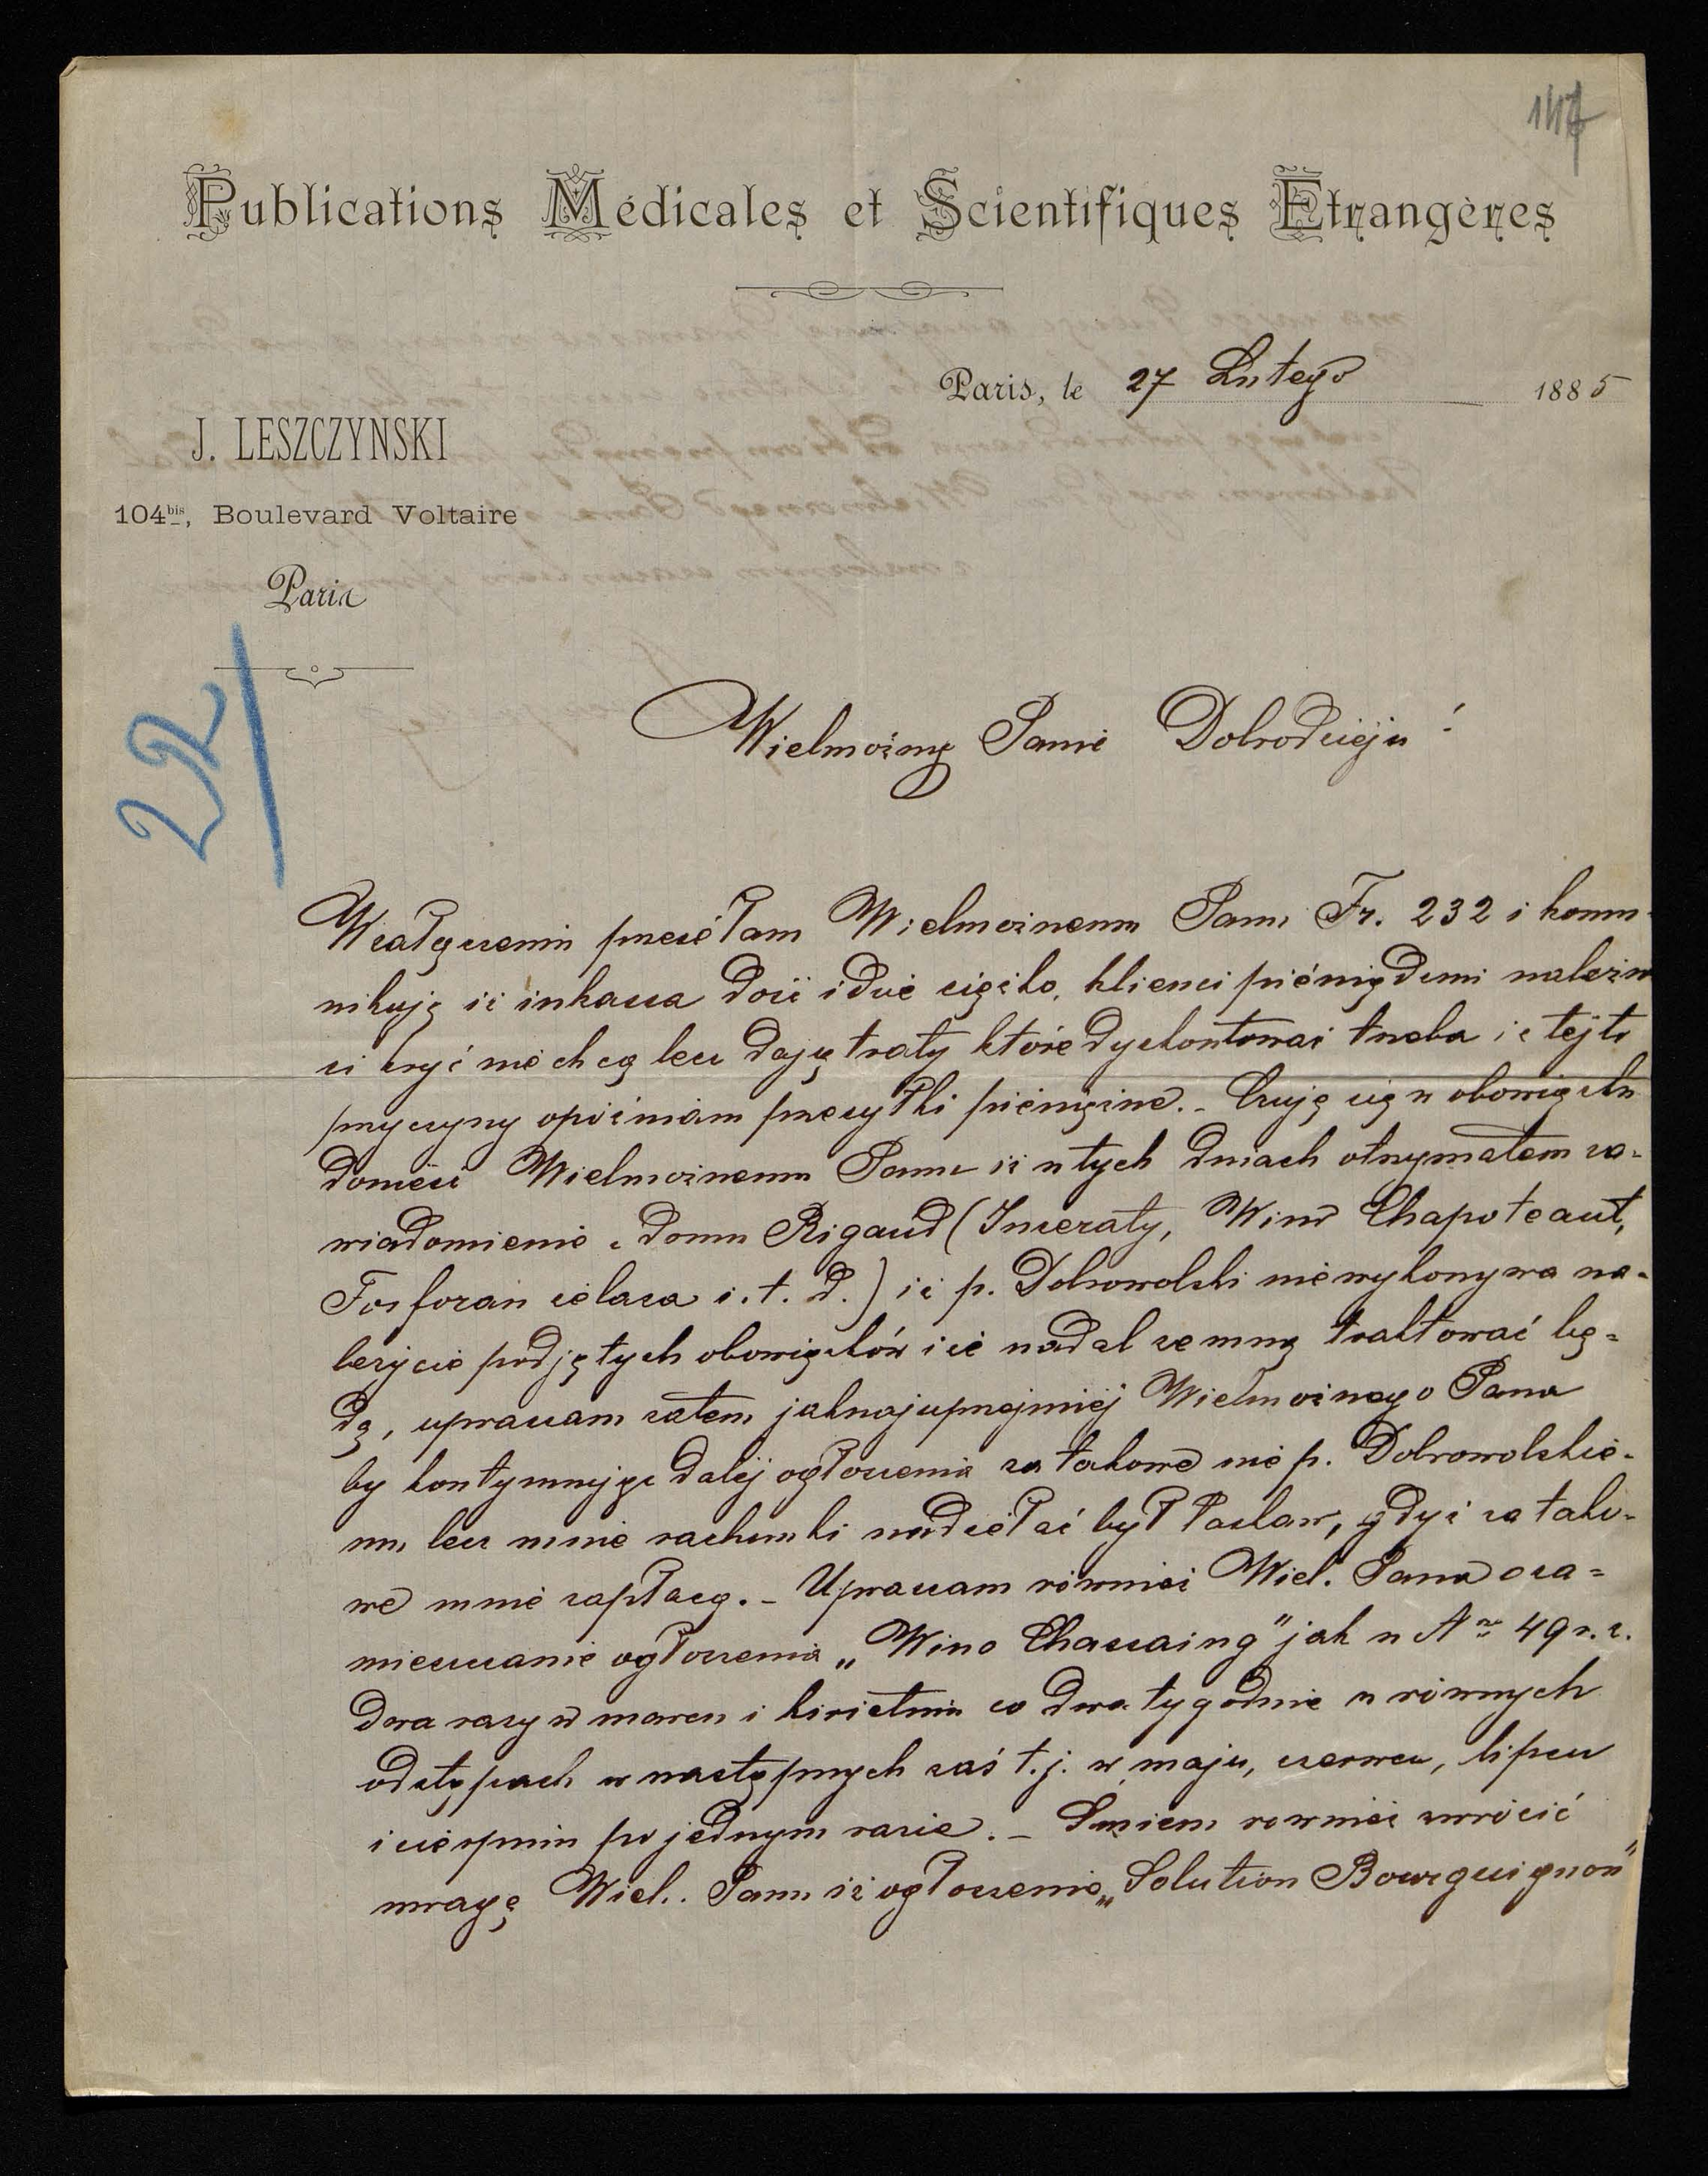 147
Publications Médicales et Scientifiques Etrangères
Paris, le 27 Lutego 1885
J. LESZCZYNSKI
104bis, Boulevard Voltaire
Paris
22/
Wielmożny Panie Dobrodzieju!
W załączeniu przesełam Wielmożnemu Panu Fr. 232 i komu-
nikuję iż inkassa dość idzie ciężko, klienci pieniędzmi należno
ści kryć nie chcą lecz dają traty które dyskontować trzeba i z tej to
przyczyny opóźniam przesyłki pieniężne. - Czuję się w obowiązku
donieść Wielmożnemu Panu iż w tych dniach otrzymałem za-
wiadomienie z domu Rigaud (Inseraty, Wino Chapoteaut,
Fosforan żelaza i. t. d.) iż p. Dobrowolski nie wykonywa na-
leżycie podjętych obowiązków i że nadal ze mną traktować bę-
dą, upraszam zatem jaknajuprzejmiej Wielmożnego Pana
by kontynuując dalej ogłoszenia za takowe nie p. Dobrowolskie-
mu lecz mnie rachunki nadsełać był łaskaw, gdyż za tako-
we mnie zapłacą. - Upraszam również Wiel. Pana o za-
mieszczanie ogłoszenia „Wino Chassaing" jak w Nro 49 r. z.
dwa razy w marcu i kwietniu co dwa tygodnie w równych
odstępach w następnych zaś t. j. w maju, czerwcu, lipcu
i sierpniu po jednym razie. - Śmiem również zwrócić
uwagę Wiel. Panu iż ogłoszenie „Solution Bourguignon"